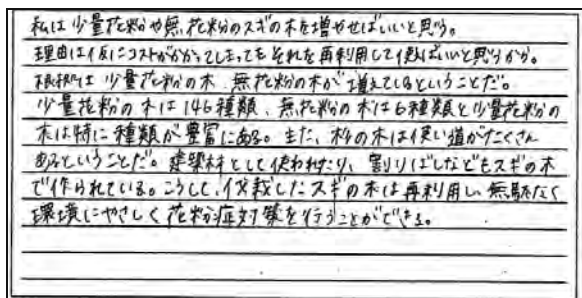 私は少量花粉や無花粉のスギの木を増やせばいいと思う。
理由は仮にコストがかかってしまってもそれを再利用して使えばいいと思うから。
根拠は少量花粉の木、無花粉の木が増えているということだ。
少量花粉の木は146種類、無花粉の木は6種類と少量花粉の
木は特に種類が豊富にある。また、杉の木は使い道がたくさん
あるということだ。建築材として使われたり、割りばしなどもスギの木
で作られている。こうして、伐栽したスギの木は再利用し、無駄なく
環境にやさしく花粉症対策を行うことができる。